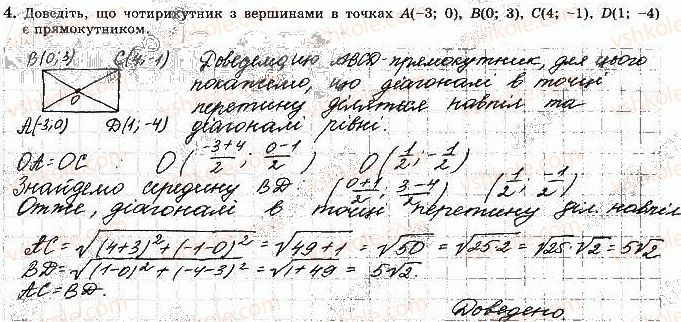 4. Доведіть, що чотирикутник з вершинами в точках A(−3; 0), B(0; 3), C(4; −1), D(1; −4)
є прямокутником.
B(0;3) C(4;-1)
O
A(-3;0) D(1;-4)
Доведемо що ABCD-прямокутник, для цього
покажемо, що діагоналі в точці
перетину діляться навпіл та
діагоналі рівні.
OA=OC O(-3+4/2; 0-1/2) O(1/2; -1/2)
Знайдемо середину BD: (0+1/2; 3-4/2) (1/2; -1/2)
Отже, діагоналі в точці перетину діл. навпіл
AC=√((4+3)²+(-1-0)²)=√(49+1)=√50=√(25·2)=√25·√2=5√2
BD=√((1-0)²+(-4-3)²)=√(1+49)=5√2.
AC=BD.
Доведено.